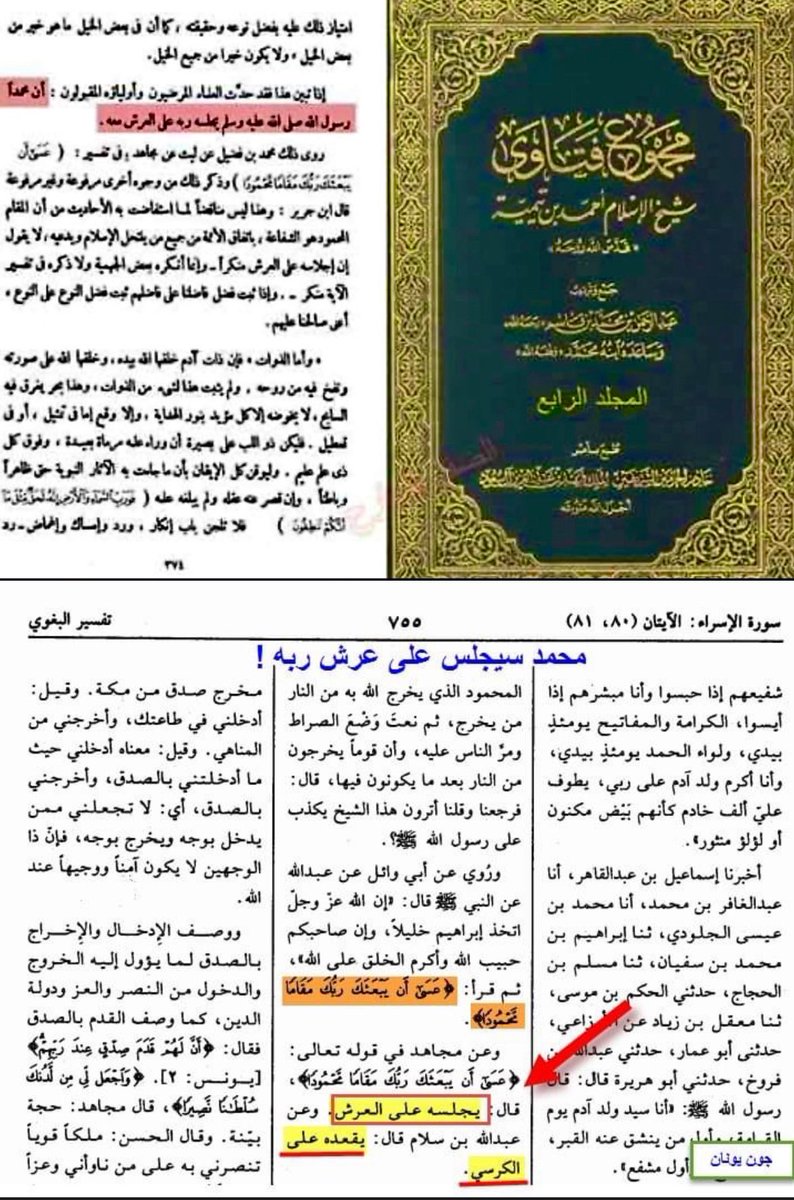 امتياز ذلك عليه بفضل نوعه وحقيقته ، كما أن في بعض الخيل ما هو خير من
بعض الخيل ، ولا يكون خيرا من جميع الخيل.
إذا تبين هذا فقد حدث العلماء المرضيون وأولياؤه المقبولون : أن محمداً
رسول الله صلى الله عليه وسلم يجلسه ربه على العرش معه .
روى ذلك محمد بن فضيل عن ليث عن مجاهد ؛ في تفسير : ( عَسَىٰ أَن
يَبْعَثَكَ رَبُّكَ مَقَامًا مَّحْمُودًا ) وذكر ذلك من وجوه أخرى مرفوعة وغير مرفوعة
قال ابن جرير : وهذا ليس مناقضاً لما استفاضت به الأحاديث من أن المقام
المحمود هو الشفاعة ، باتفاق الأئمة من جميع من ينتحل الإسلام ويدعيه ، لا يقول
إن إجلاسه على العرش منكراً ـ وإنما أنكره بعض الجهمية ولا ذكره في تفسير
الآية منكر ـ . وإذا ثبت فضل فاضلنا على فاضلهم ثبت فضل النوع على النوع ،
أعنى صالحنا عليهم .
« وأما الذوات » فإن ذات آدم خلقها الله بيده ، وخلقها الله على صورته
ونفخ فيه من روحه . ولم يثبت هذا لشيء من الذوات ، وهذا بحر يغرق فيه
السابح ، لا يخوضه إلا كل مؤيد بنور الهداية ، وإلا وقع إما في تمثيل ، أو في
تعطيل . فليكن ذو اللب على بصيرة أن وراء علمه مرماة بعيدة ، وفوق كل
ذى علم عليم . وليوقن كل الإيقان بأن ما جاءت به الآثار النبوية حق ظاهراً
وباطناً ، وإن قصر عنه عقله ولم يبلغه علمه ( فَوَرَبِّ السَّمَاءِ وَالْأَرْضِ إِنَّهُ لَحَقٌّ مِّثْلَ مَا
أَنَّكُمْ تَنطِقُونَ ) فلا تلجن باب إنكار ، ورد وإمساك وإغماض ـ رد
٣٧٤
مجموع فتاوى
شيخ الإسلام أحمد بن تيمية
« قدس الله روحه »
جمع وترتيب
عبد الرحمن بن محمد بن قاسم «رحمه الله»
وساعده ابنه محمد «وفقه الله»
المجلد الرابع
طبع بأمر
أجزل الله مثوبته
سورة الإسراء: الآيتان (٨٠، ٨١)
٧٥٥
تفسير البغوي
محمد سيجلس على عرش ربه !
شفيعهم إذا حبسوا وأنا مبشرهم إذا
أيسوا، الكرامة والمفاتيح يومئذٍ
بيدي، ولواء الحمد يومئذٍ بيدي،
وأنا أكرم ولد آدم على ربي، يطوف
عليّ ألف خادم كأنهم بَيْض مكنون
أو لؤلؤ منثور».
أخبرنا إسماعيل بن عبدالقاهر، أنا
عبدالغافر بن محمد، أنا محمد بن
عيسى الجلودي، ثنا إبراهيم بن
محمد بن سفيان، ثنا مسلم بن
الحجاج، حدثني الحكم بن موسى،
ثنا معقل بن زياد عن الأوزاعي،
حدثني أبو عمار، حدثني عبدالله بن
فروخ، حدثني أبو هريرة قال: قال
رسول الله ﷺ: «أنا سيد ولد آدم يوم
القيامة، وأول من ينشق عنه القبر،
أول مشفع».
المحمود الذي يخرج الله به من النار
من يخرج، ثم نعتَ وَضْعَ الصراط
ومرَّ الناس عليه، وأن قوماً يخرجون
من النار بعد ما يكونون فيها، قال:
فرجعنا وقلنا أترون هذا الشيخ يكذب
على رسول الله ﷺ؟.
ورُوي عن أبي وائل عن عبدالله
عن النبي ﷺ قال: «إن الله عزّ وجلّ
اتخذ إبراهيم خليلاً، وإن صاحبكم
حبيب الله وأكرم الخلق على الله»،
ثم قرأ: ﴿عَسَىٰ أَن يَبْعَثَكَ رَبُّكَ مَقَامًا
مَّحْمُودًا﴾.
وعن مجاهد في قوله تعالى:
﴿عَسَىٰ أَن يَبْعَثَكَ رَبُّكَ مَقَامًا مَّحْمُودًا﴾،
قال: يجلسه على العرش. وعن
عبدالله بن سلام قال: يقعده على
الكرسي.
مخرج صدق من مكة. وقيل:
أدخلني في طاعتك، وأخرجني من
المناهي. وقيل: معناه أدخلني حيث
ما أدخلتني بالصدق، وأخرجني
بالصدق، أي: لا تجعلني ممن
يدخل بوجه ويخرج بوجه، فإنّ ذا
الوجهين لا يكون آمناً ووجيهاً عند
الله.
ووصف الإدخال والإخراج
بالصدق لما يؤول إليه الخروج
والدخول من النصر والعز ودولة
الدين، كما وصف القدم بالصدق
فقال: ﴿أَنَّ لَهُمْ قَدَمَ صِدْقٍ عِندَ رَبِّهِمْ﴾
[يونس: ٢]. ﴿وَاجْعَل لِّي مِن لَّدُنكَ
سُلْطَانًا نَّصِيرًا﴾، قال مجاهد: حجة
بيّنة. وقال الحسن: ملكاً قوياً
تنصرني به على من ناوأني وعزاً
جون يونان